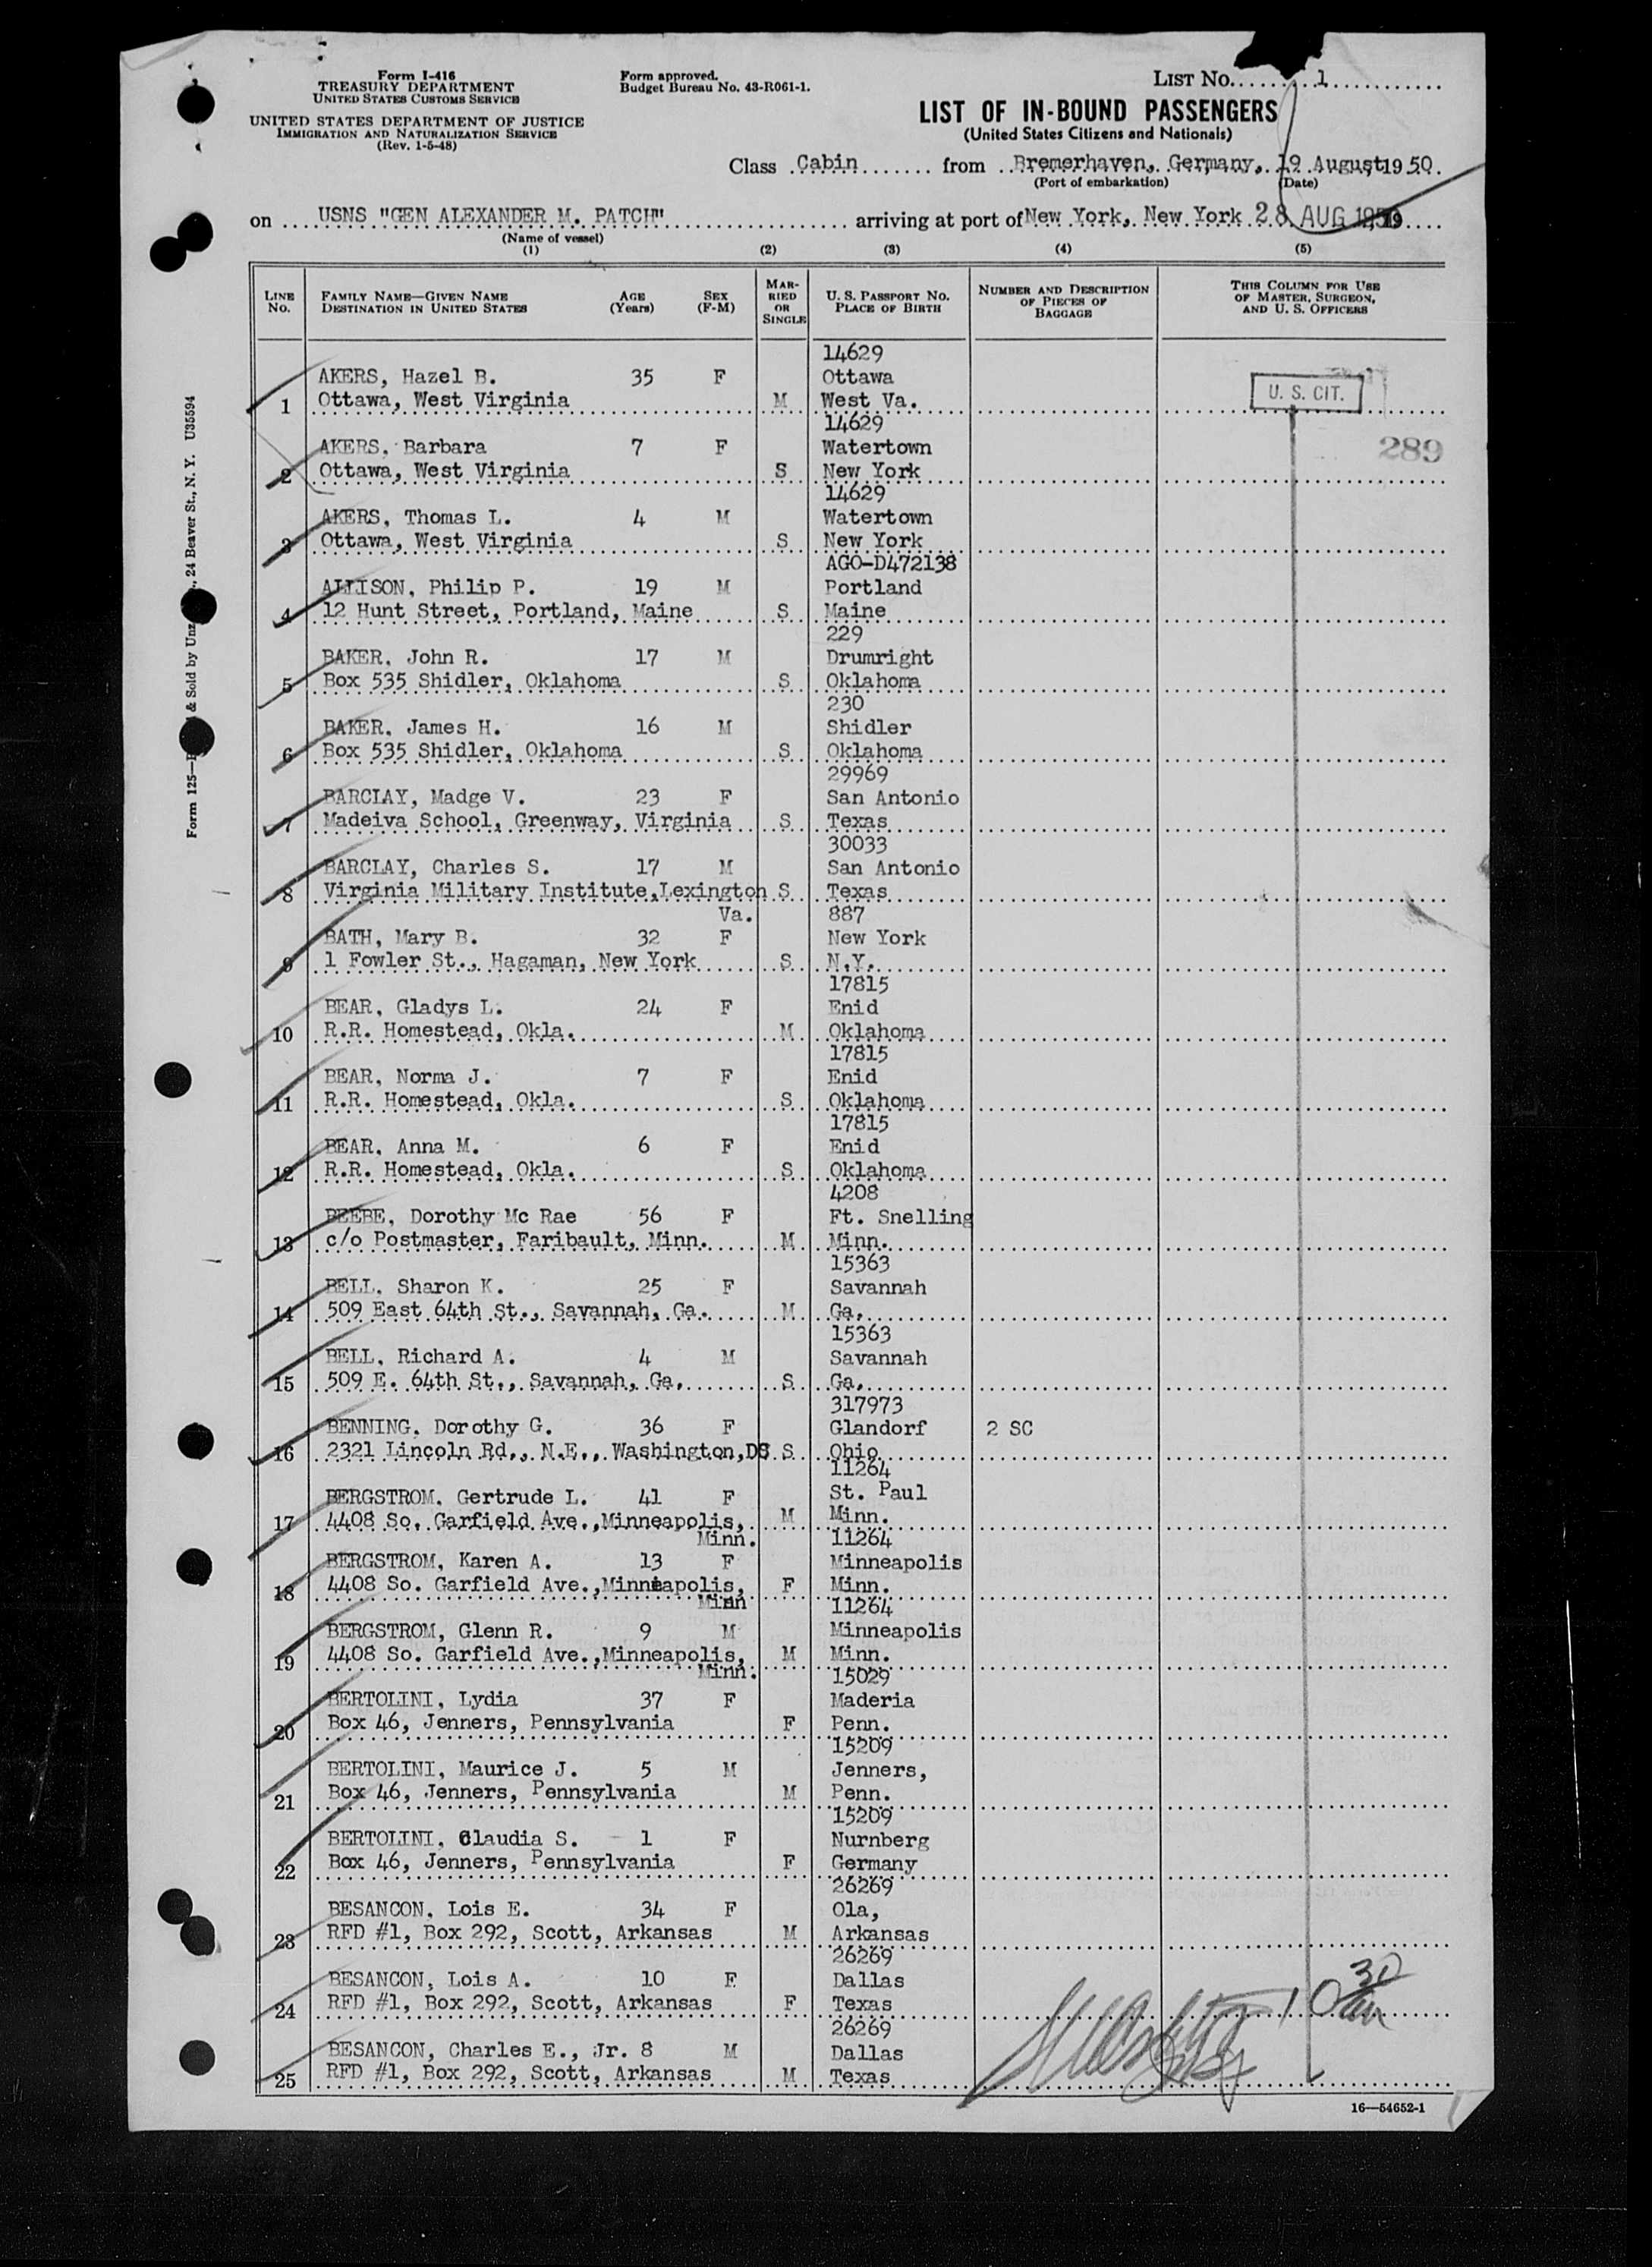 Form I-416
TREASURY DEPARTMENT
UNITED STATES CUSTOMS SERVICE
UNITED STATES DEPARTMENT OF JUSTICE
IMMIGRATION AND NATURALIZATION SERVICE
(Rev. 1-5-48)
Form approved.
Budget Bureau No. 43-R061-1.
LIST NO. 1
LIST OF IN-BOUND PASSENGERS
(United States Citizens and Nationals)
Class Cabin from Bremerhaven, Germany, 19 August 1950.
(Port of embarkation) (Date)
on USNS "GEN ALEXANDER M. PATCH" arriving at port of New York, New York 28 AUG 1950 19
(Name of vessel)
(1) (2) (3) (4) (5)
LINE NO.
FAMILY NAME—GIVEN NAME DESTINATION IN UNITED STATES
AGE (Years)
SEX (F-M)
MARRIED OR SINGLE
U. S. PASSPORT NO. PLACE OF BIRTH
NUMBER AND DESCRIPTION OF PIECES OF BAGGAGE
THIS COLUMN FOR USE OF MASTER, SURGEON, AND U. S. OFFICERS
14629
AKERS, Hazel B. 35 F Ottawa
1 Ottawa, West Virginia M West Va. U. S. CIT.
14629
AKERS, Barbara 7 F Watertown 289
2 Ottawa, West Virginia S New York
14629
AKERS, Thomas L. 4 M Watertown
3 Ottawa, West Virginia S New York
AGO-D472138
ALLISON, Philip P. 19 M Portland
4 12 Hunt Street, Portland, Maine S Maine
229
BAKER, John R. 17 M Drumright
5 Box 535 Shidler, Oklahoma S Oklahoma
230
BAKER, James H. 16 M Shidler
6 Box 535 Shidler, Oklahoma S Oklahoma
29969
BARCLAY, Madge V. 23 F San Antonio
7 Madeiva School, Greenway, Virginia S Texas
30033
BARCLAY, Charles S. 17 M San Antonio
8 Virginia Military Institute,Lexington S Texas
Va. 887
BATH, Mary B. 32 F New York
9 1 Fowler St., Hagaman, New York S N.Y.
17815
BEAR, Gladys L. 24 F Enid
10 R.R. Homestead, Okla. M Oklahoma
17815
BEAR, Norma J. 7 F Enid
11 R.R. Homestead, Okla. S Oklahoma
17815
BEAR, Anna M. 6 F Enid
12 R.R. Homestead, Okla. S Oklahoma
4208
BEEBE, Dorothy Mc Rae 56 F Ft. Snelling
13 c/o Postmaster, Faribault, Minn. M Minn.
15363
BELL, Sharon K. 25 F Savannah
14 509 East 64th St., Savannah, Ga. M Ga.
15363
BELL, Richard A. 4 M Savannah
15 509 E. 64th St., Savannah, Ga. S Ga.
317973
BENNING, Dorothy G. 36 F Glandorf 2 SC
16 2321 Lincoln Rd., N.E., Washington,DC S Ohio
11264
BERGSTROM, Gertrude L. 41 F St. Paul
17 4408 So. Garfield Ave.,Minneapolis, M Minn.
Minn. 11264
BERGSTROM, Karen A. 13 F Minneapolis
18 4408 So. Garfield Ave.,Minneapolis, F Minn.
Minn 11264
BERGSTROM, Glenn R. 9 M Minneapolis
19 4408 So. Garfield Ave.,Minneapolis, M Minn.
Minn. 15029
BERTOLINI, Lydia 37 F Maderia
20 Box 46, Jenners, Pennsylvania F Penn.
15209
BERTOLINI, Maurice J. 5 M Jenners,
21 Box 46, Jenners, Pennsylvania M Penn.
15209
BERTOLINI, Claudia S. 1 F Nurnberg
22 Box 46, Jenners, Pennsylvania F Germany
26269
BESANCON, Lois E. 34 F Ola,
23 RFD #1, Box 292, Scott, Arkansas M Arkansas
26269
BESANCON, Lois A. 10 F Dallas
24 RFD #1, Box 292, Scott, Arkansas F Texas 10 30 am
26269
BESANCON, Charles E., Jr. 8 M Dallas
25 RFD #1, Box 292, Scott, Arkansas M Texas
16—54652-1
Form 125— & Sold by Unz , 24 Beaver St., N. Y. U35594